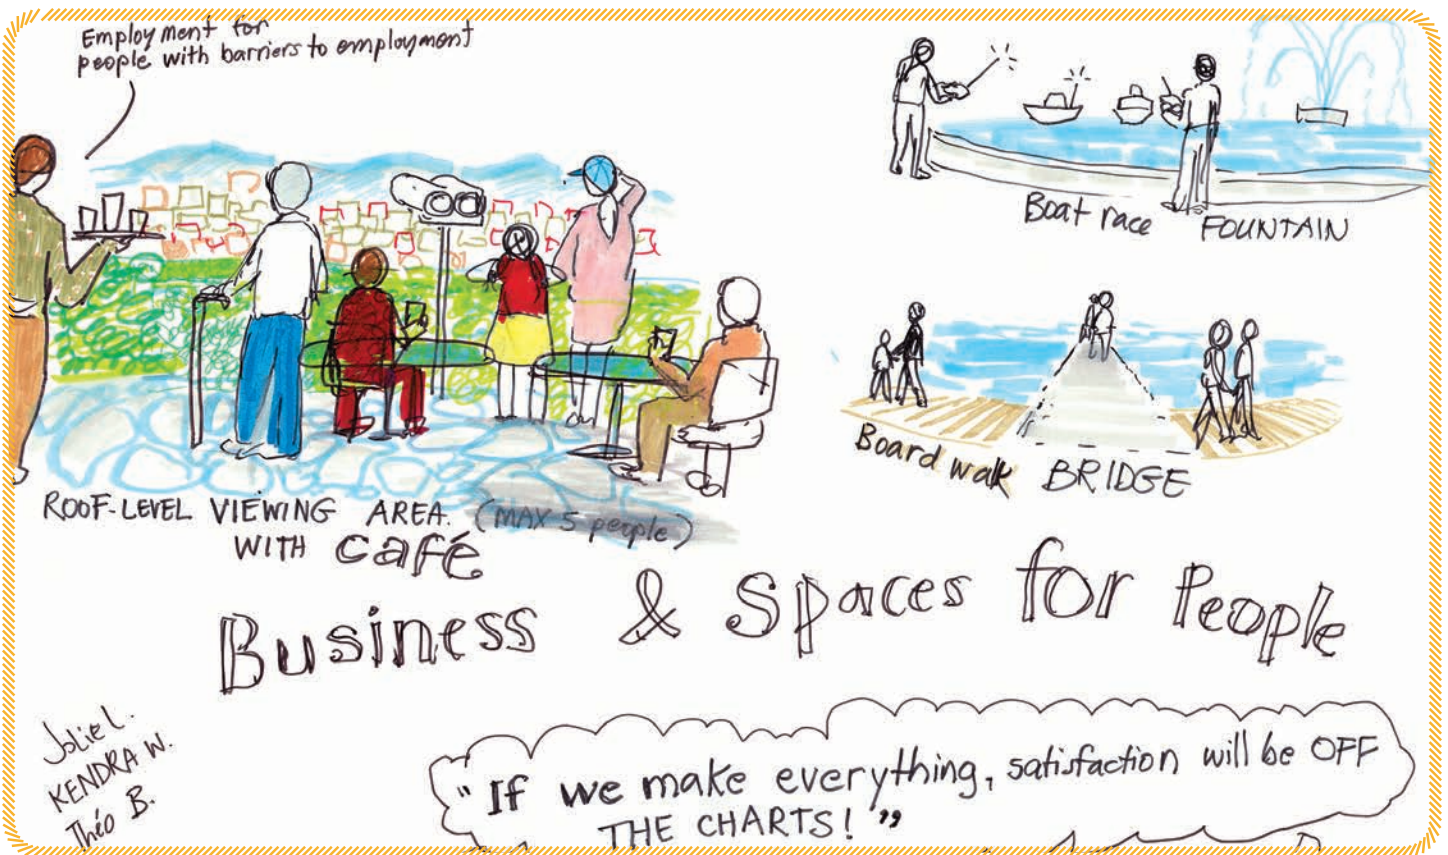 Employment for
people with barriers to employment
Boat race FOUNTAIN
Board walk BRIDGE
ROOF-LEVEL VIEWING AREA. (MAX 5 people)
WITH café
Business & Spaces for People
Jolie L.
KENDRA W.
Théo B.
"If we make everything, satisfaction will be OFF
THE CHARTS!"